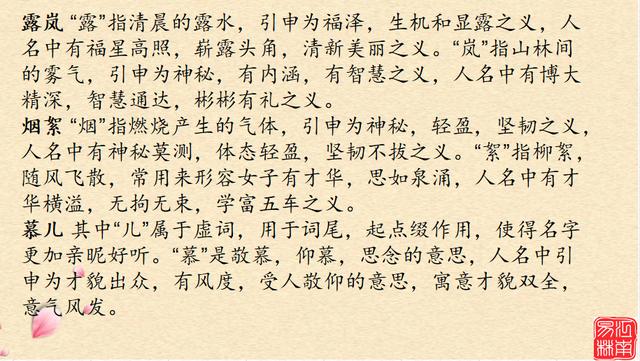 露岚 “露”指清晨的露水，引申为福泽，生机和显露之义，人
名中有福星高照，崭露头角，清新美丽之义。“岚”指山林间
的雾气，引申为神秘，有内涵，有智慧之义，人名中有博大
精深，智慧通达，彬彬有礼之义。
烟絮 “烟”指燃烧产生的气体，引申为神秘，轻盈，坚韧之义，
人名中有神秘莫测，体态轻盈，坚韧不拔之义。“絮”指柳絮，
随风飞散，常用来形容女子有才华，思如泉涌，人名中有才
华横溢，无拘无束，学富五车之义。
慕儿 其中“儿”属于虚词，用于词尾，起点缀作用，使得名字
更加亲昵好听。“慕”是敬慕，仰慕，思念的意思，人名中引
申为才貌出众，有风度，受人敬仰的意思，寓意才貌双全，
意气风发。
江南
易林